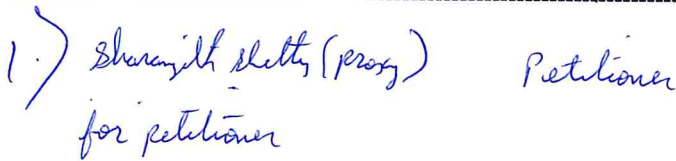 1.) Sharanjith Shetty (proxy) Petitioner
for petitioner